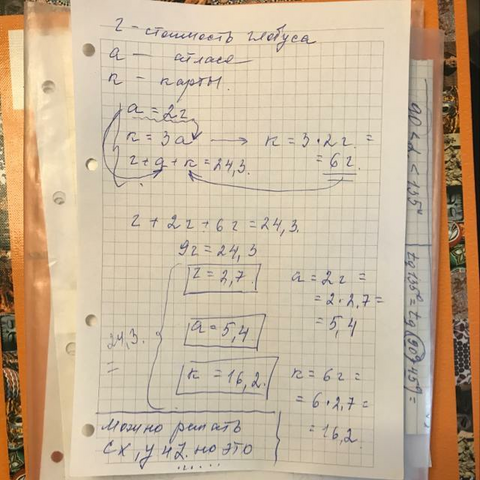 г - стоимость глобуса
а — атласа
к — карты.
а = 2г
к = 3а → к = 3·2г =
= 6г.
г + а + к = 24,3.
г + 2г + 6г = 24,3.
9г = 24,3
г = 2,7.
а = 2г =
= 2·2,7 =
= 5,4
а = 5,4
24,3.
к = 16,2.
к = 6г =
= 6·2,7 =
= 16,2
Можно решать
с х, у и z. но это
90 < α < 135°
tg 135° = tg (90° + 45°) =